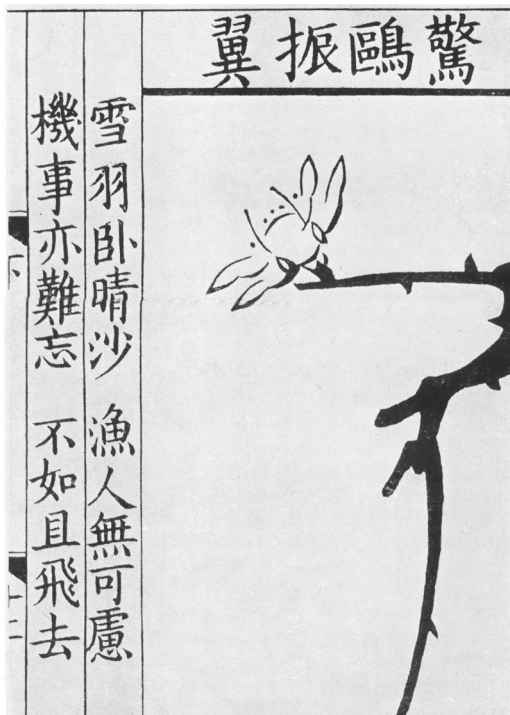 驚鷗振翼
雪羽卧晴沙 漁人無可慮
機事亦難忘 不如且飛去
下
十二